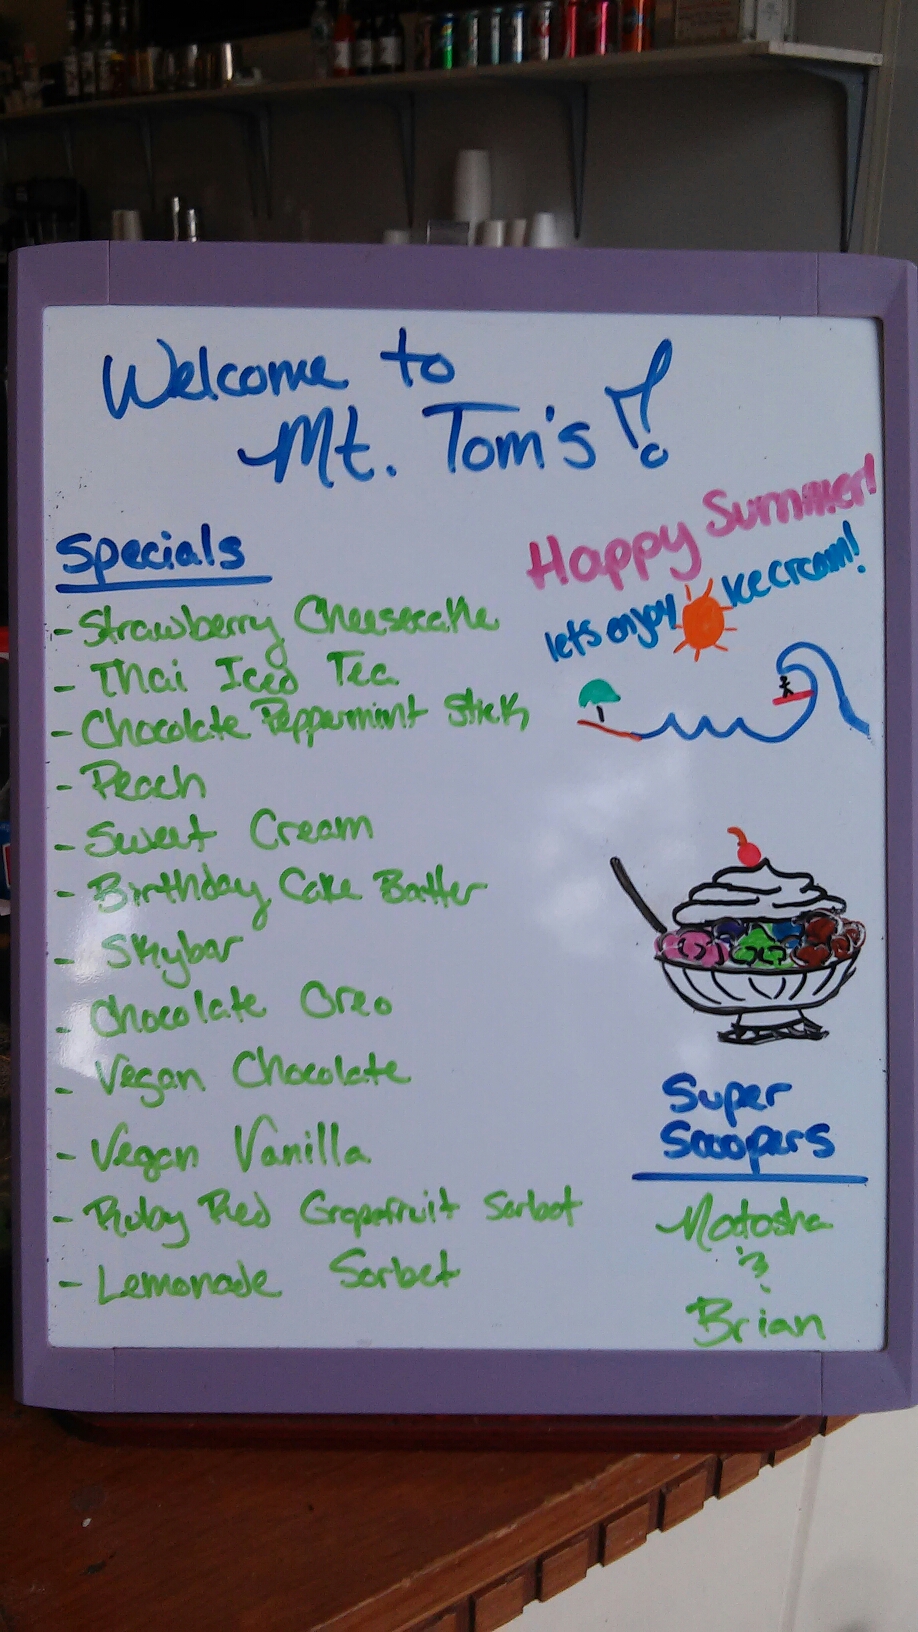 Welcome to
Mt. Tom's!
Specials
- Strawberry Cheesecake
- Thai Iced Tea
- Chocolate Peppermint Stick
- Peach
- Sweet Cream
- Birthday Cake Batter
- Skybar
- Chocolate Oreo
- Vegan Chocolate
- Vegan Vanilla
- Ruby Red Grapefruit Sorbet
- Lemonade Sorbet
Happy Summer!
lets enjoy Ice cream!
Super
Scoopers
Natosha
&
Brian